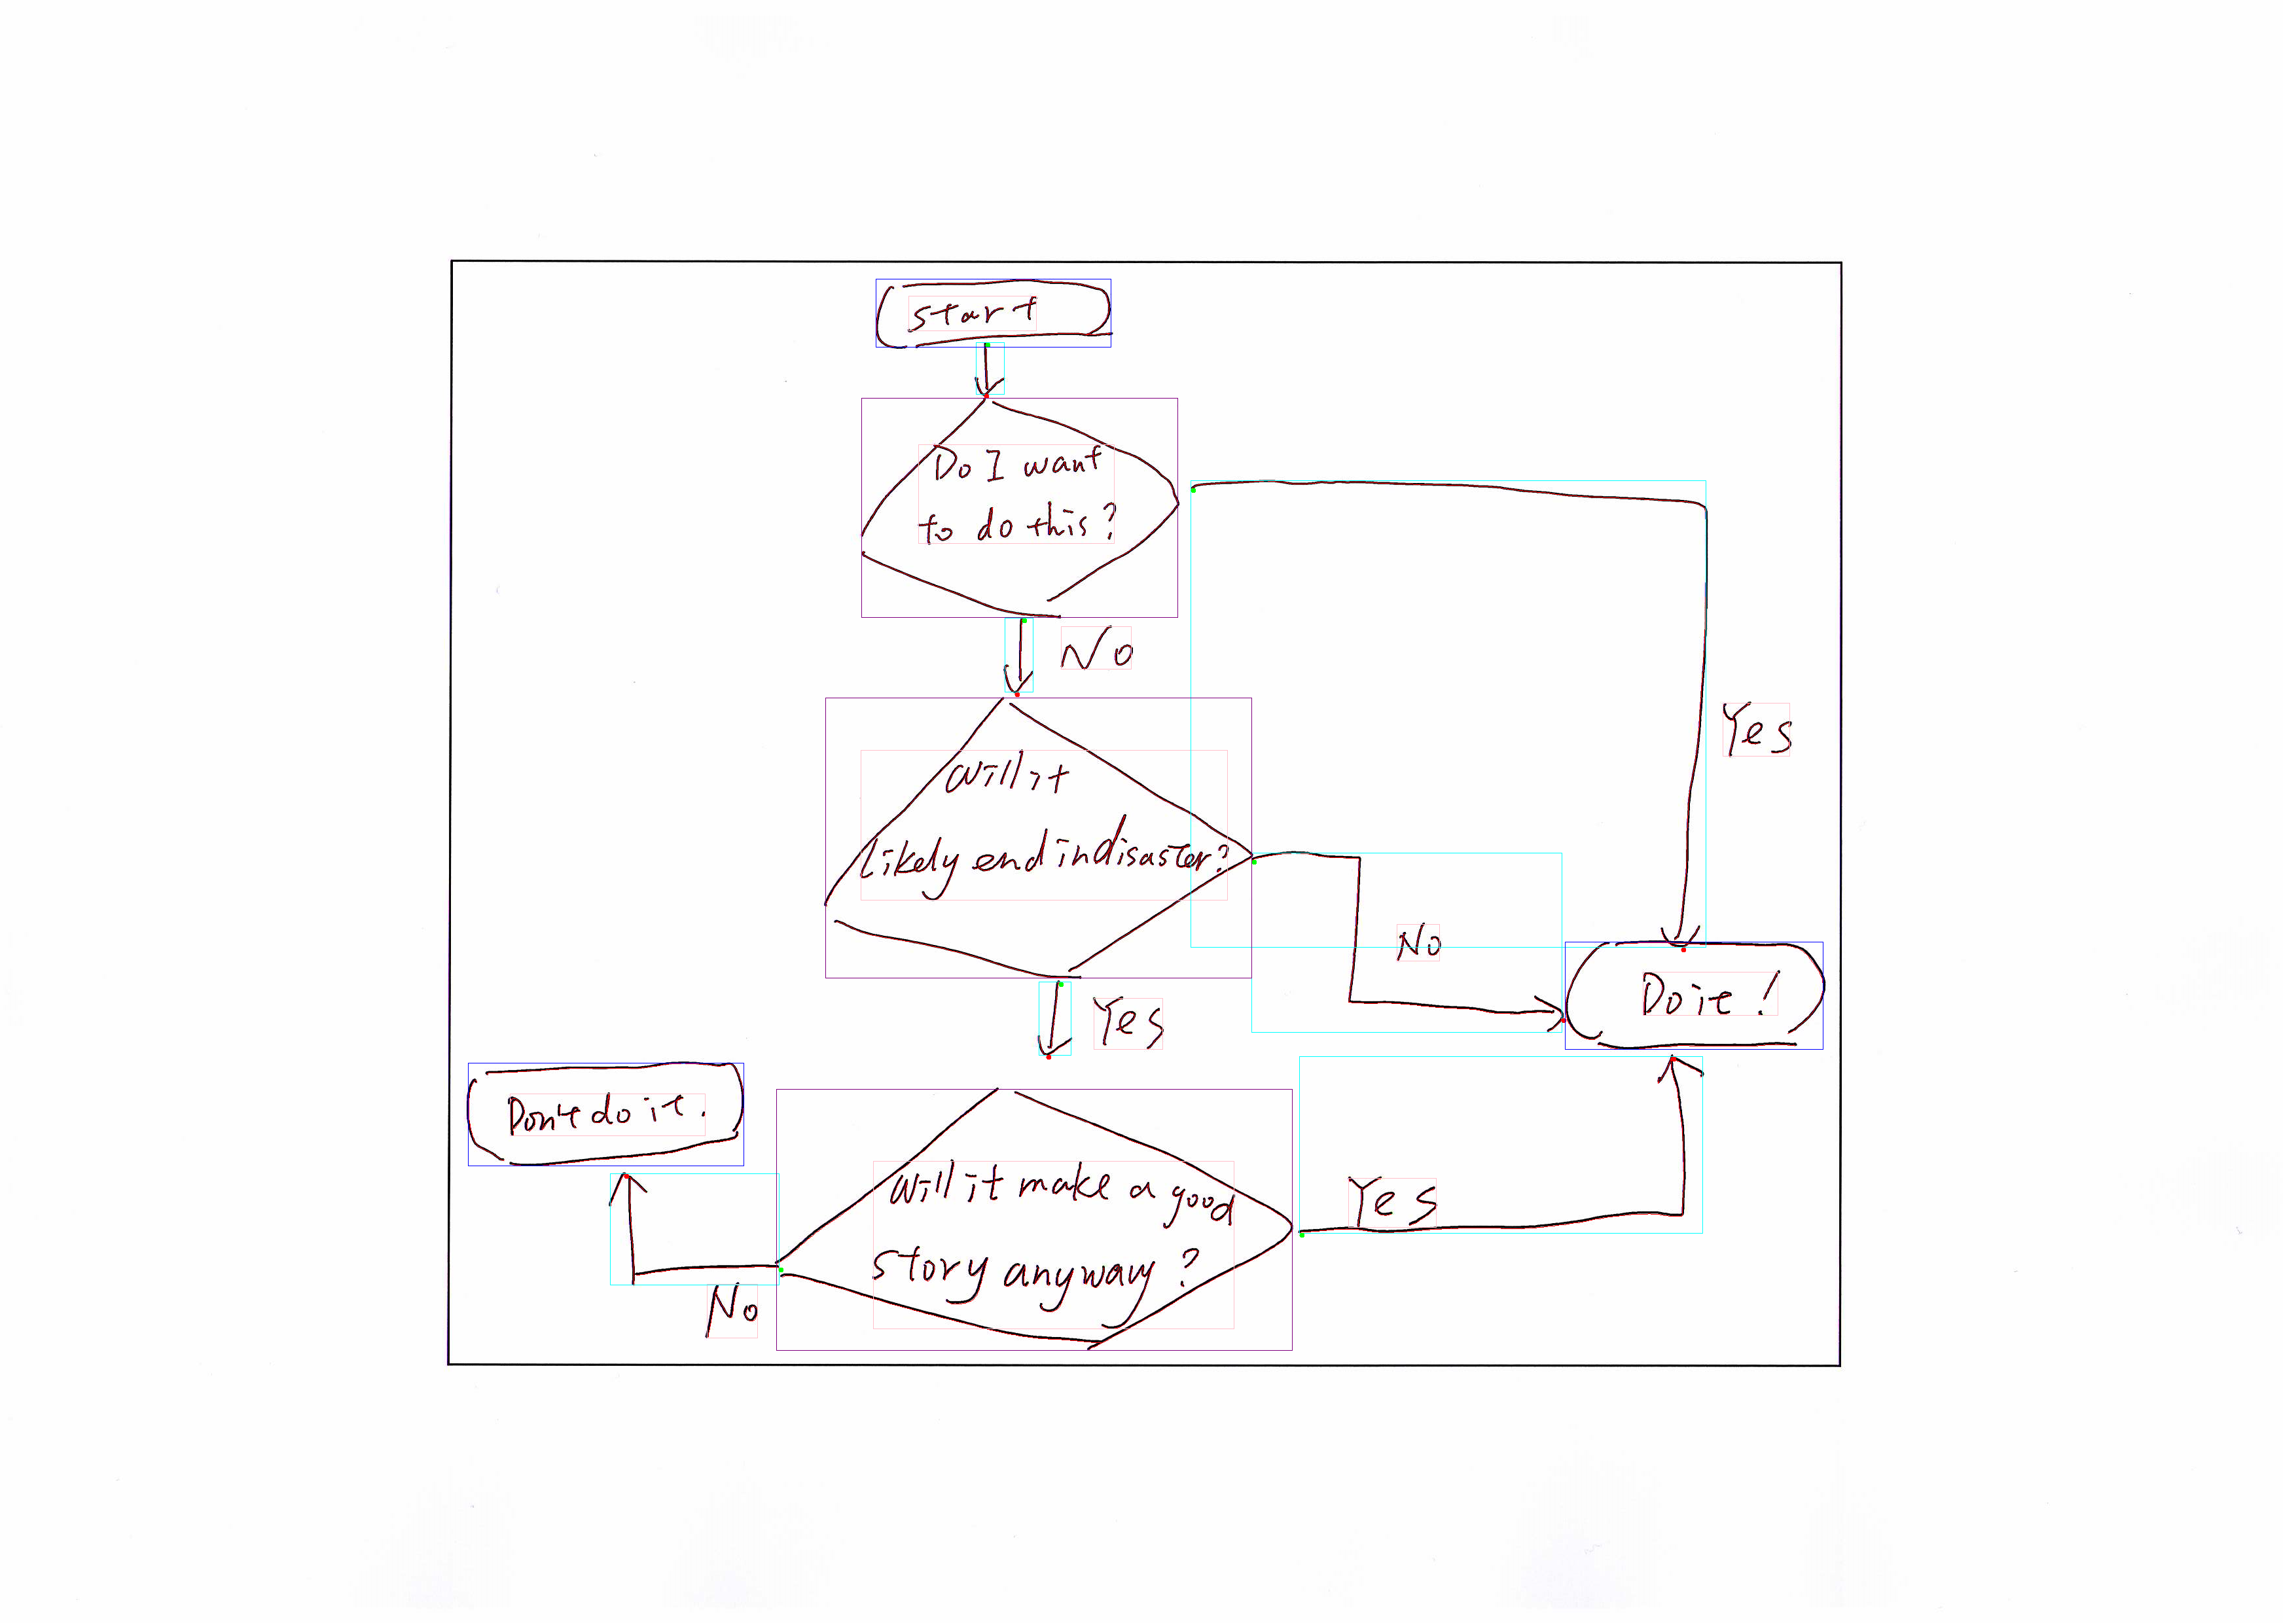 start
Do I want
to do this?
No
Yes
Will it
likely end in disaster?
No
Yes
Do it!
Don't do it.
Will it make a good
story anyway?
Yes
No